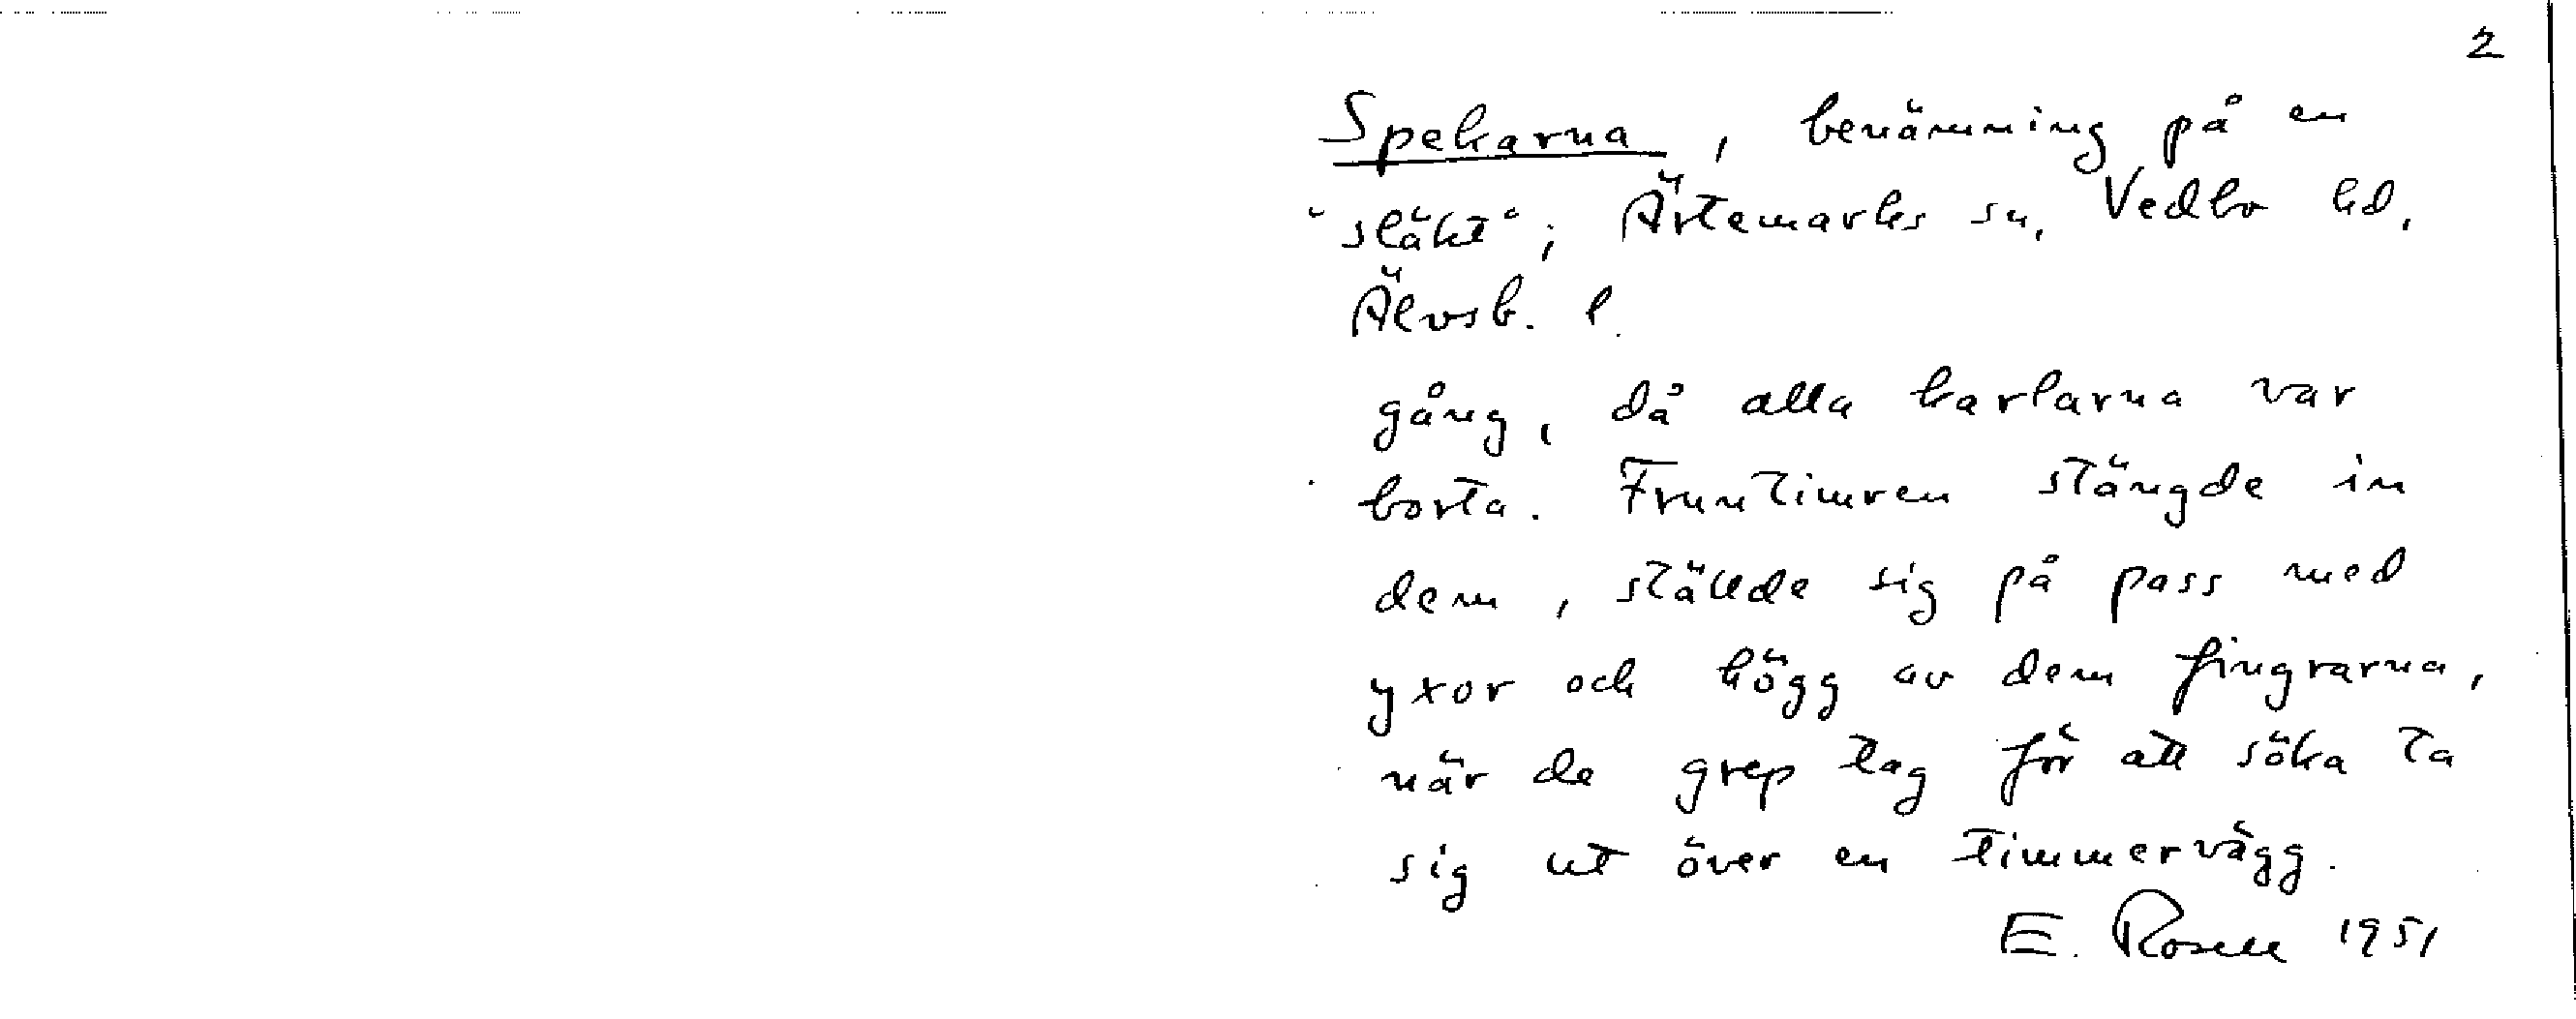 2
Spekarna, benämning på en
"släkt"; Ärtemarks sn, Vedbo hd,
Älvsb. l.
gång, då alla karlarna var
borta. Fruntimren stängde in
dem, ställde sig på pass med
yxor och högg av dem fingrarna,
när de grep tag för att söka ta
sig ut över en timmervägg.
E. Rosell 1951